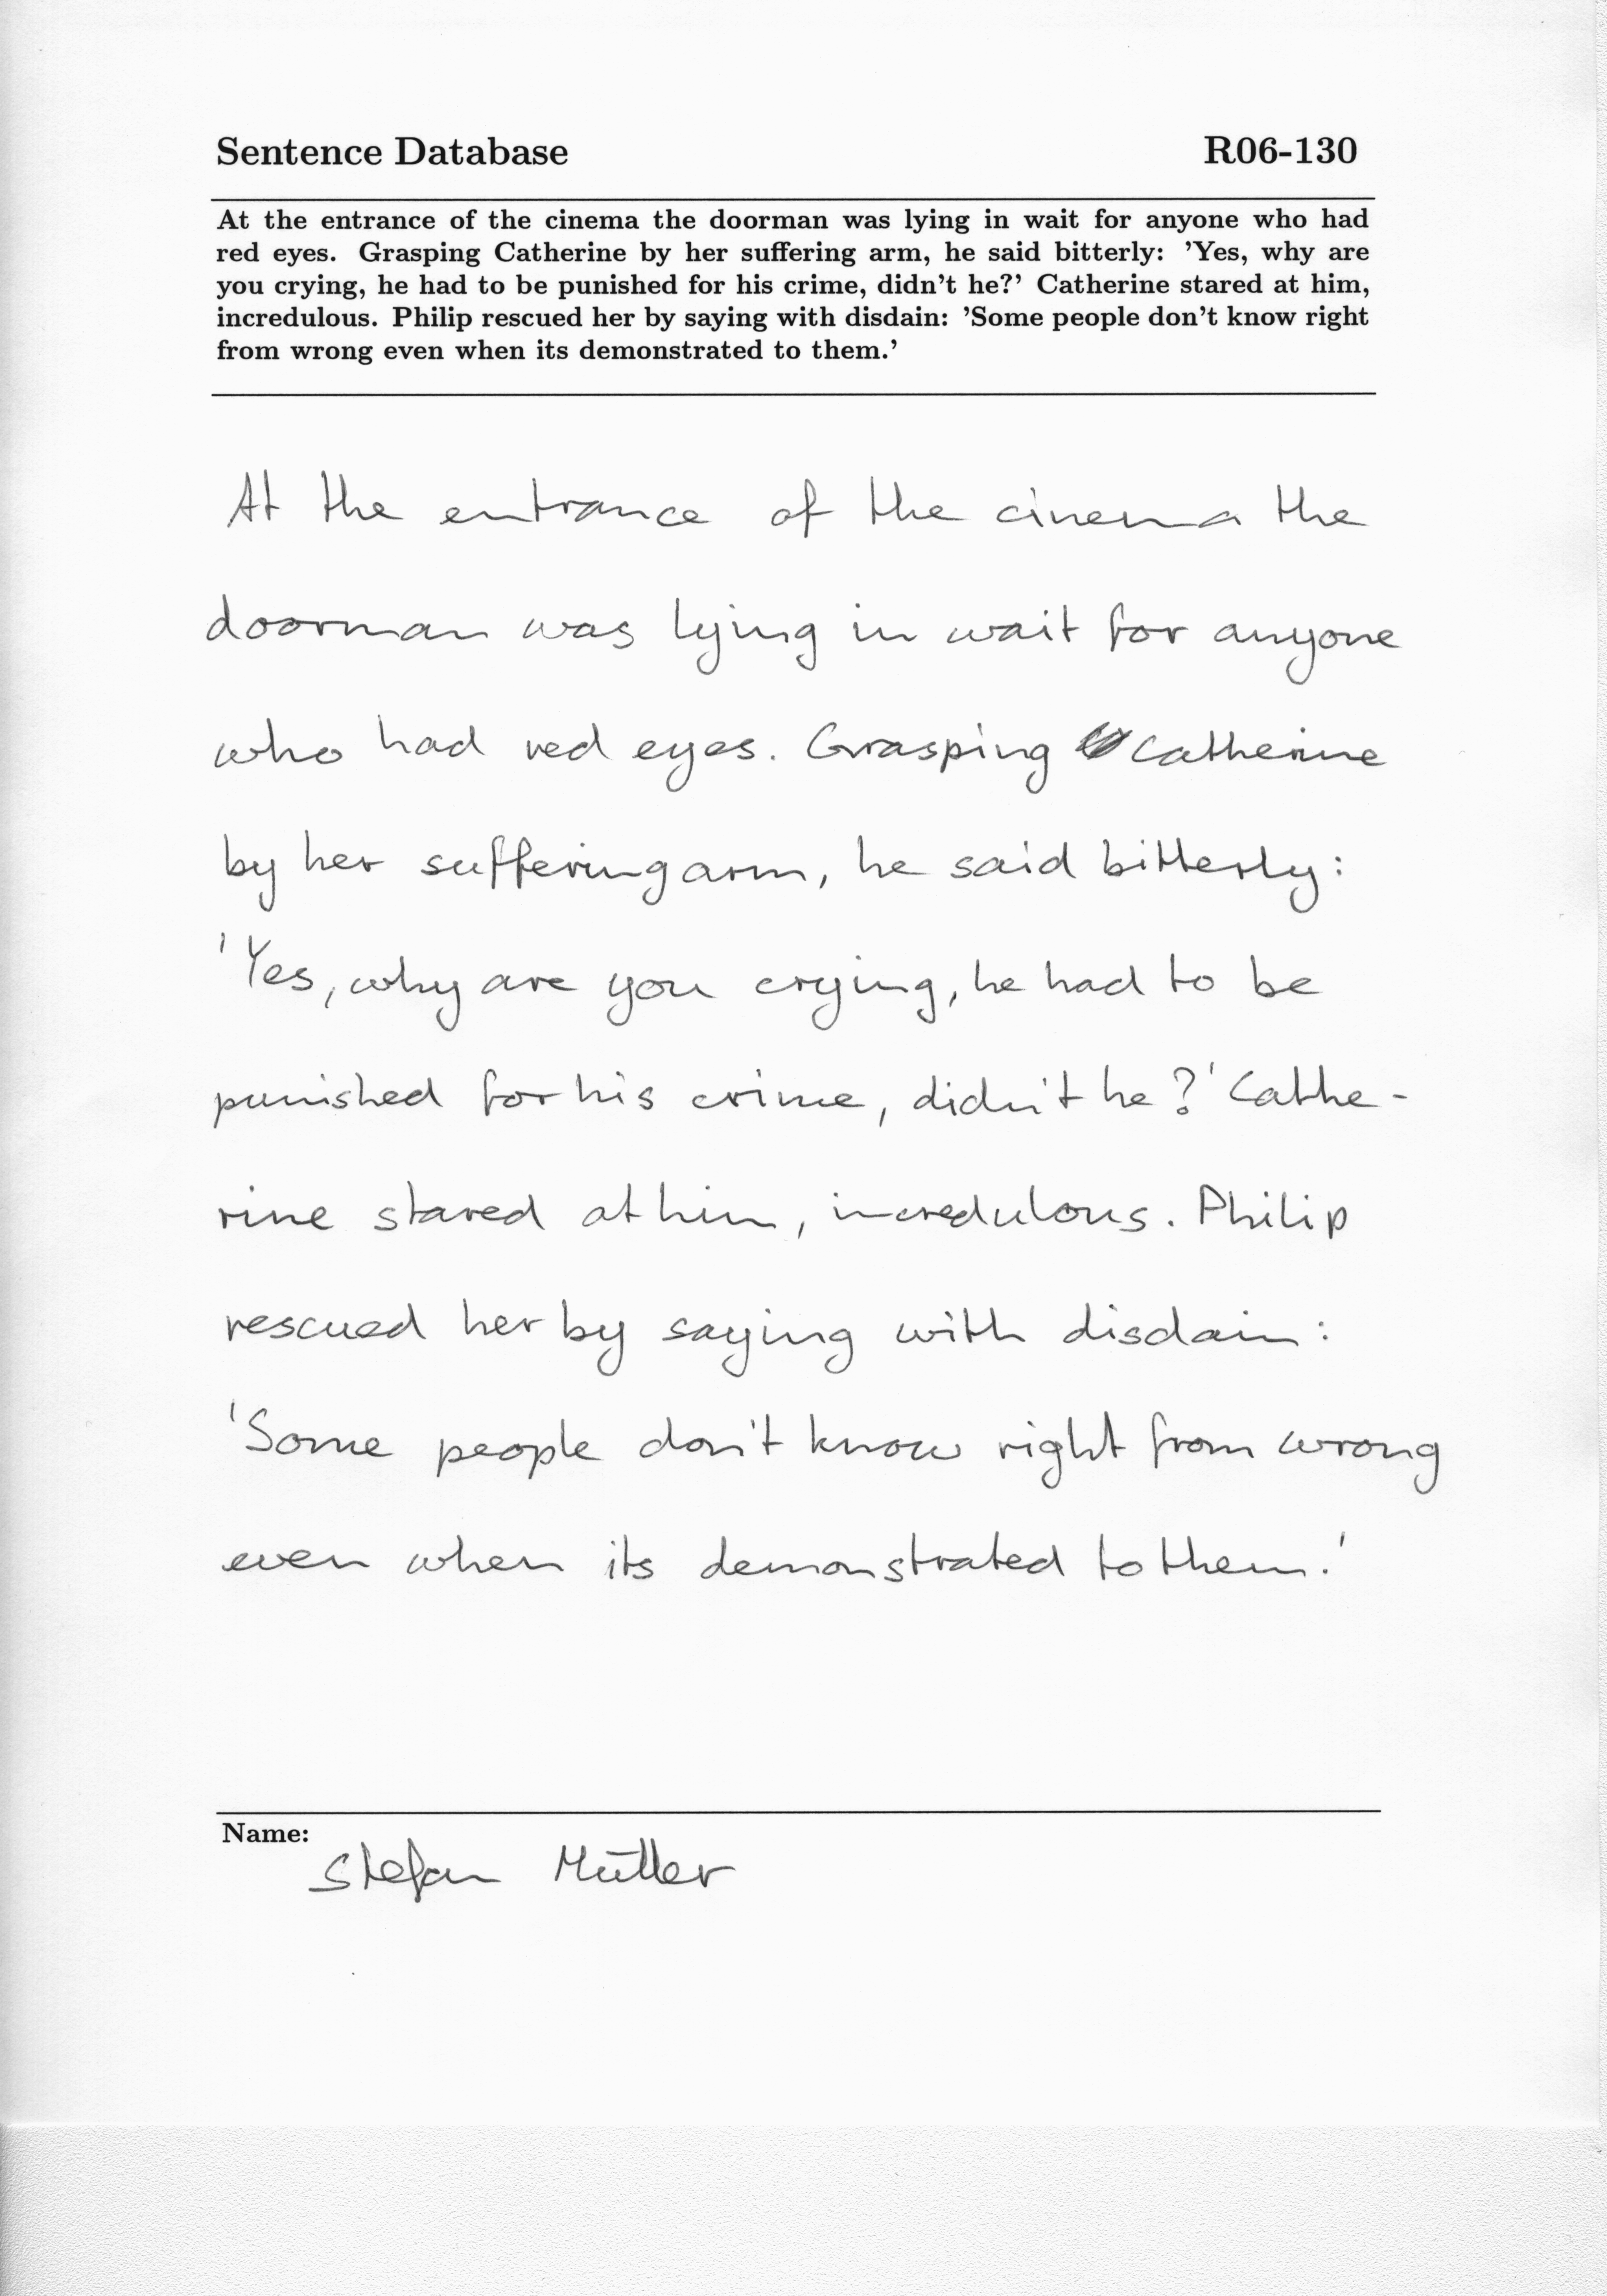 Sentence Database R06-130
At the entrance of the cinema the doorman was lying in wait for anyone who had
red eyes. Grasping Catherine by her suffering arm, he said bitterly: 'Yes, why are
you crying, he had to be punished for his crime, didn't he?' Catherine stared at him,
incredulous. Philip rescued her by saying with disdain: 'Some people don't know right
from wrong even when its demonstrated to them.'
At the entrance of the cinema the
doorman was lying in wait for anyone
who had red eyes. Grasping Catherine
by her suffering arm, he said bitterly:
'Yes, why are you crying, he had to be
punished for his crime, didn't he?' Cathe-
rine stared at him, incredulous. Philip
rescued her by saying with disdain:
'Some people don't know right from wrong
even when its demonstrated to them.'
Name:
Stefan Müller